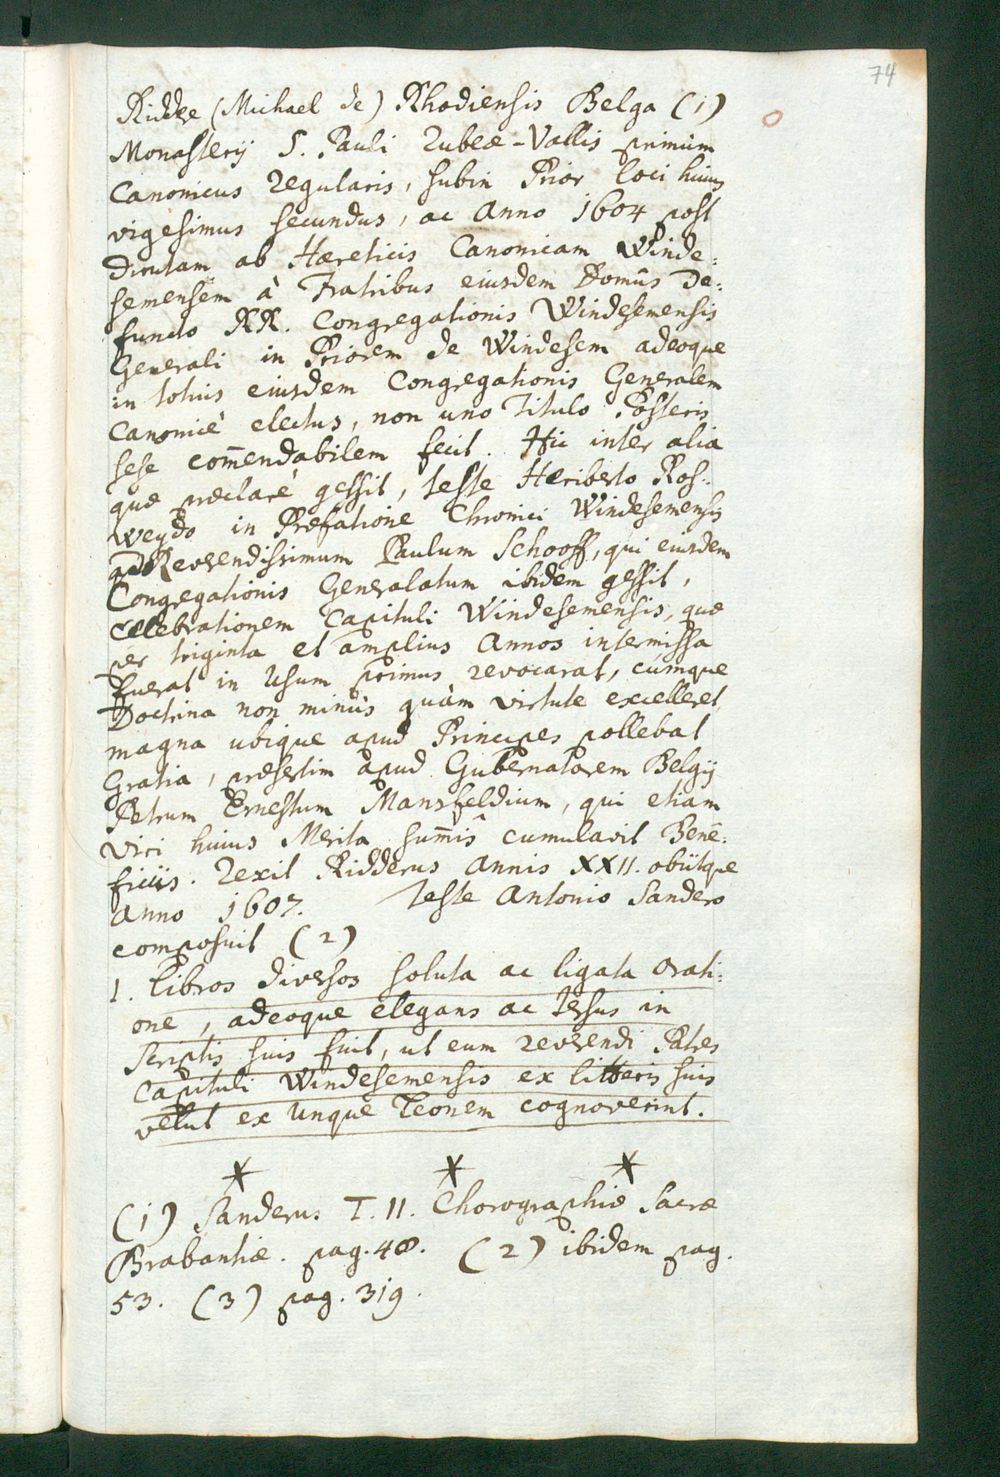 74
Ridder (Michael de) Rhodiensis Belga (1)
Monasterij S. Pauli Rubeæ-Vallis primùm
Canonicus regularis, subin Prior loci huius
vigesimus secundus, ac Anno 1604 post
dirutam ab Hæreticis Canonicam Winde:
semensem à Fratribus eiusdem Domûs De:
functo RR. Congregationis Windesemensis
Generali in Priorem de Windesem adeoque
in totius eiusdem Congregationis Generalem
Canonicè electus, non uno Titulo Posteris
sese com̄endabilem fecit. Hic inter alia
quæ præclarè gessit, teste Heriberto Ros:
weydo in Præfatione Chronici Windesemensis
ad Reverendissimum Paulum Schooff, qui eiusdem
Congregationis Generalatum ibidem gessit,
Celebrationem Capituli Windesemensis, quæ
per triginta et amplius Annos intermissa
fuerat in Usum primus revocarat, cúmque
Doctrina non minùs quàm virtute excelleret
magna ubique apud Principes pollebat
Gratia, præsertim apud Gubernatorem Belgij
Petrum Ernestum Mansfeldium, qui etiam
viri huius Merita sum̄is cumulavit Bene:
ficiis. Rexit Ridderus Annis XXII. obiitque
Anno 1607. Teste Antonio Sandero
composuit (2)
1. Libros diversos soluta ac ligata orati:
one, adeoque elegans ac tersus in
scriptis suis fuit, ut eum reverendi Patres
Capituli Windesemensis ex litteris suis
velut ex Ungue Leonem cognoverint.
(1) Sanderus T. II. Chorographiæ Sacræ
Brabantiæ. pag. 48. (2) ibidem pag.
53. (3) pag. 319.